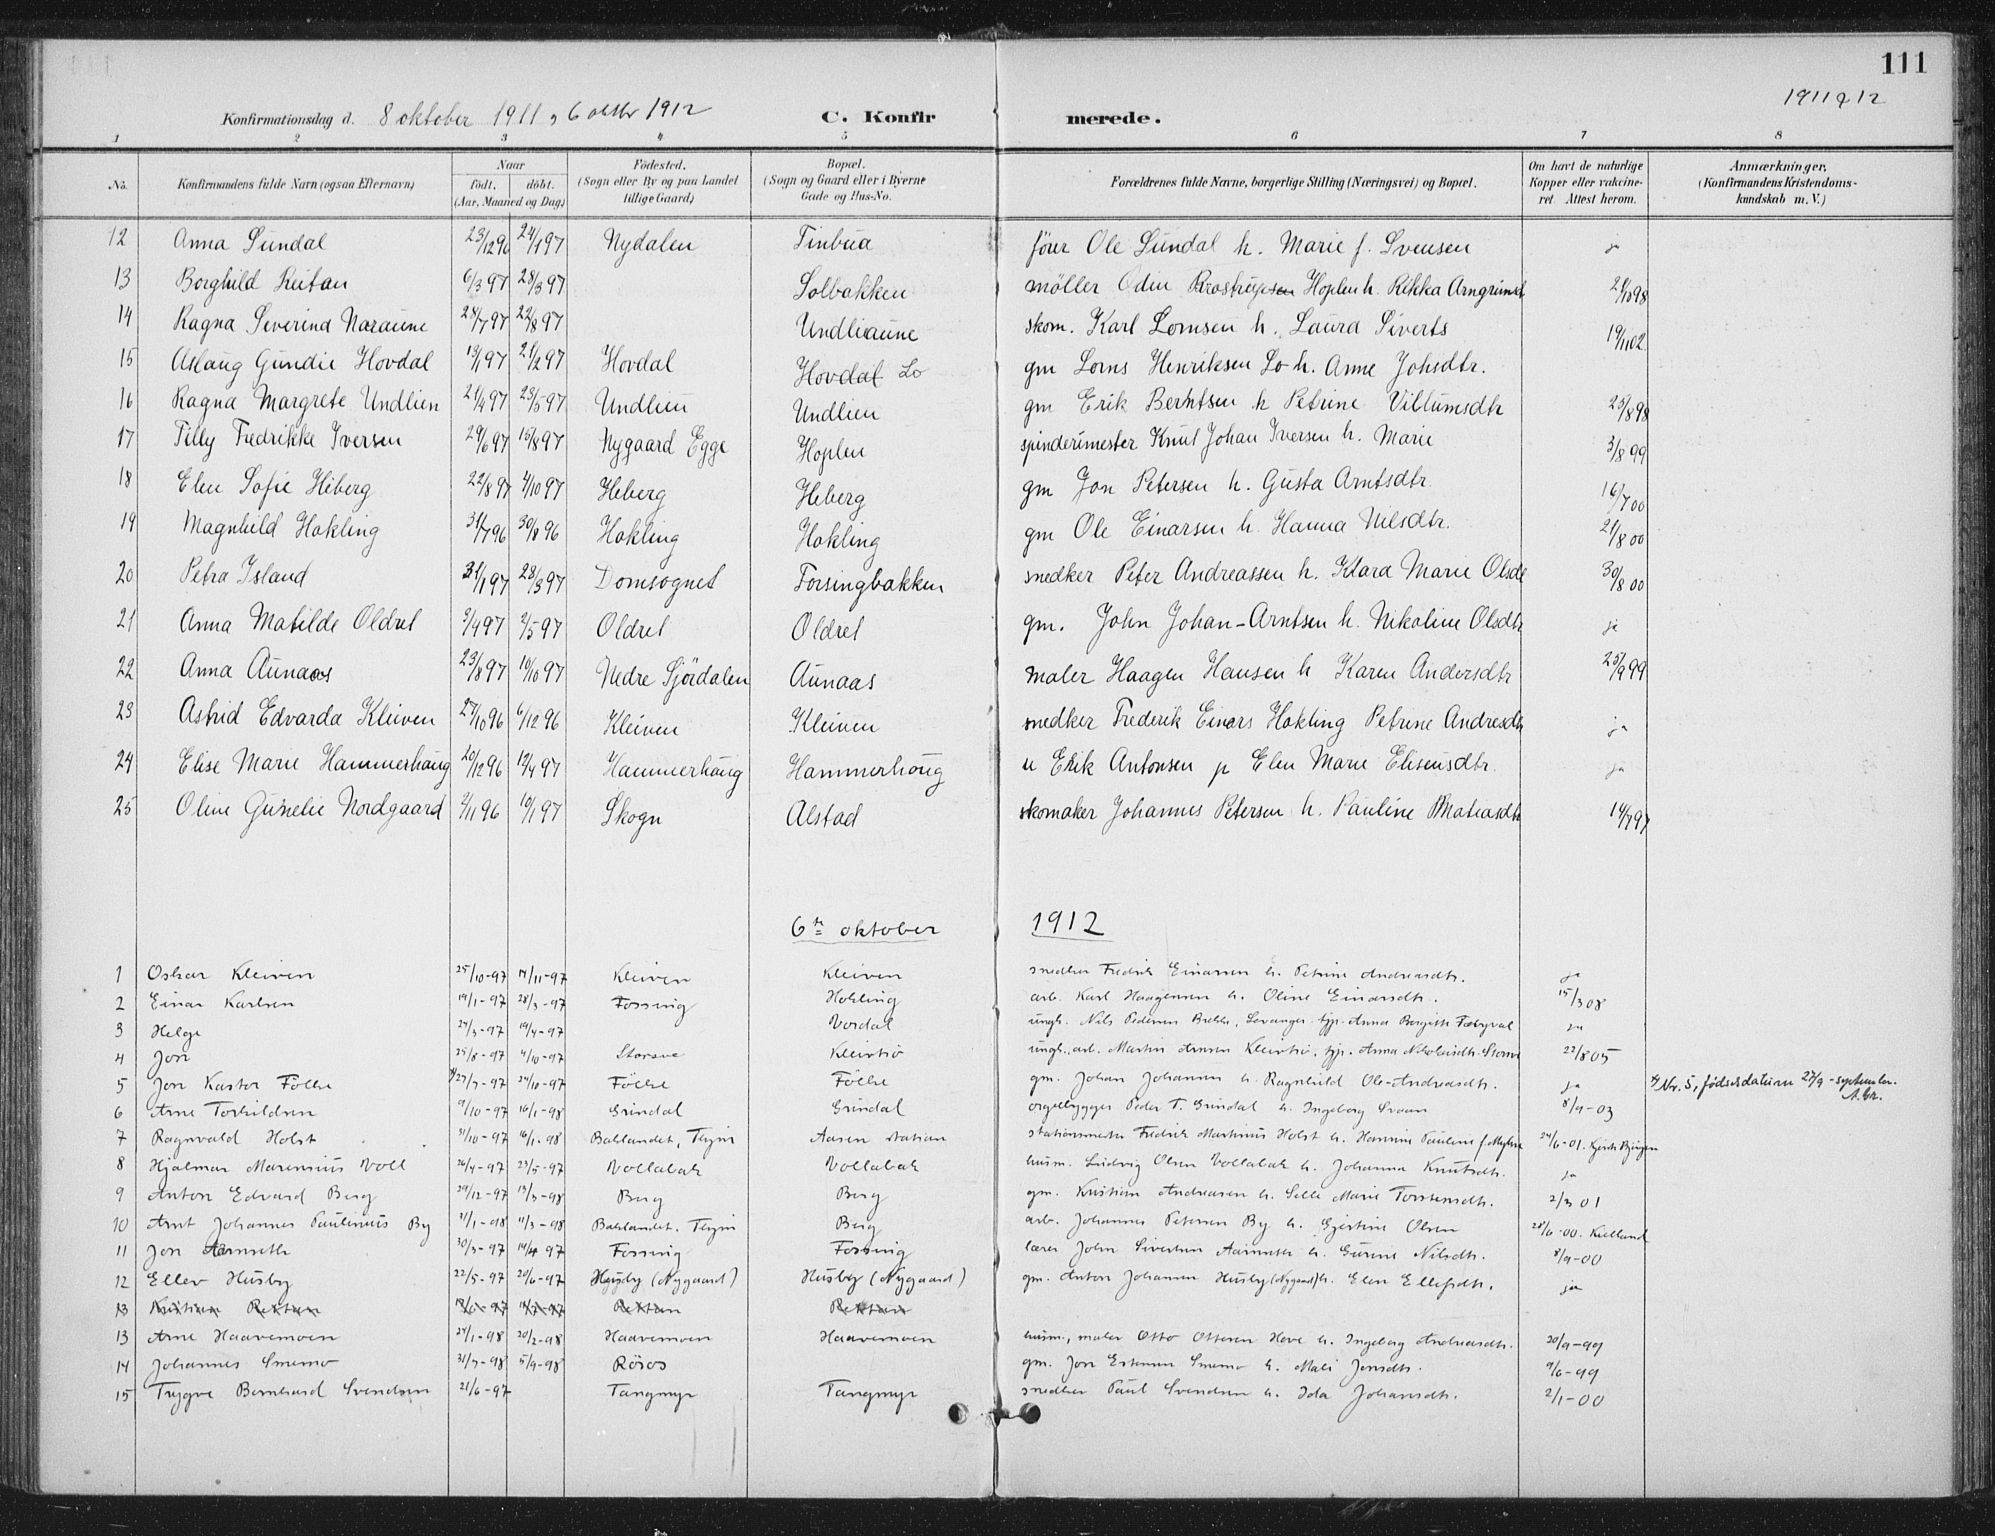 111
1911 & 12
Konfirmationsdag d. 8 oktober 1911, 6 oktbr 1912 C. Konfirmerede.
1 2 3 4 5 6 7 8
No. Konfirmandens fulde Navn (ogsaa Efternavn) Naar født, døbt. (Aar, Maaned og Dag) Födested. (Sogn eller By og paa Landet tillige Gaard) Bopæl. (Sogn og Gaard eller i Byerne Gade og Hus-No. Forældrenes fulde Navne, borgerlige Stilling (Næringsvei) og Bopæl. Om havt de naturlige Kopper eller vakcineret. Attest herom. Anmærkninger. (Konfirmandens Kristendomskundskab m. V.)
12 Anna Sundal 23/12 96 24/1 97 Nydalen Tinbua förer Ole Sundal h. Marie f. Svensen ja
13 Borghild Reitan 6/3 97 28/3 97 Solbakken möller Oden Hoplen h. Rikka 21/10 98
14 Ragna Severine Naraune 28/7 97 22/8 97 Undliaune skom. Karl Lornsen h. Laura Siverts 19/11 02
15 Aslaug Gundie Hovdal 13/1 97 21/2 97 Hovdal Hovdal Lo gm Lorns Henriksen Lo h. Anne Johsdtr.
16 Ragna Margrete Undlien 21/4 97 23/5 97 Undlien Undlien gm Erik Berntsen h Petrine Villumsdtr 25/8 98
17 Tilly Fredrikke Iversen 29/6 97 15/8 97 Nygaard Egge Hoplen spinderimester Knut Johan Iversen h. Marie 3/8 99
18 Elen Sofie Heberg 22/8 97 4/10 97 Heberg Heberg gm Jon Petersen h. Gusta Arntsdtr. 16/7 00
19 Magnhild Hokling 31/7 96 30/8 96 Hokling Hokling gm Ole Einarsen h. Hanna Nilsdtr. 21/8 00
20 Petra Island 31/1 97 28/3 97 Domsognet Forsingbakken snedker Peter Andreassen h. Klara Marie Olsdt 30/8 00
21 Anna Matilde Oldret 3/4 97 2/5 97 Oldret Oldret gm. John Johan-Arntsen h. Nikoline Olsdtr ja
22 Anna Aunaas 23/8 97 10/10 97 Nedre Sjördalen Aunaas maler Haagen Hansen h Karen Andersdtr 25/9 99
23 Astrid Edvarda Kleiven 27/10 96 6/12 96 Kleiven Kleiven snedker Frederik Einars Hokling Petrine Andresdtr ja
24 Elise Marie Hammerhaug 20/12 96 19/4 97 Hammerhaug Hammerhoug u Erik Antonsen p Elen Marie Eliseusdtr. ja
25 Oline Gunelie Nordgaard 2/11 96 10/1 97 Skogn Alstad skomaker Johannes Petersen h. Pauline Matiasdtr 14/7 97
6te oktober 1912
1 Oskar Kleiven 25/10-97 14/11-97 Kleiven Kleiven snedker Fredrik Einarsen h. Petrine Andreasdtr. ja
2 Einar Karlsen 19/1-97 28/3-97 Fossing Hokling arb. Karl Haagensen h. Oline Einarsdtr. 15/3 08
3 Helge 27/3-97 19/4-97 Vordal ungk. Nils Pedersen Brekke, Levanger tjp. Anna Bergitte ja
4 Jon 25/8-97 4/10-97 Storsve Kleivtiö ungk., arb. Martin Arnsen Kleivtiö, tjp. Anna 22/8 05
5 Jon Kastor Fölle 27/7-97 24/10-97 Fölle Fölle gm. Johan Johansen h. Ragnhild Ole-Andreasdtr. ja Nr. 5, fødselsdatum 27/9 - september. A. Gr.
6 Arne Torkildsen 9/10-97 16/1-98 Grindal Grindal orgelbygger Peder T. Grindal h. Ingeborg Svaan 8/9-03
7 Ragnvald Holst 31/10-97 16/1-98 Baklandet, Thjm Aasen station stationsmester Fredrik Martinus Holst h. Hannine Pauline f. Myhre 24/6-01.
8 Hjalmar Marensius Voll 26/4-97 23/5-97 Vollabak Vollabak husm. Ludvig Olsen Vollabak h. Johanna Knutsdtr. ja
9 Anton Edvard Berg 29/12-97 13/3-98 Berg Berg gm. Kristian Andreasen h. Selle Marie Torstensdtr. 2/3 01
10 Arnt Johannes Paulinus By 21/1-98 11/3-98 Baklandet. Thjm Berg arb. Johannes Petersen By h. Gjertine Olsen 28/6-00. Kielland
11 Jon Aarmseth 30/3-97 19/4 97 Fossing Fossing lærer John Sivertsen h. Gurine Nilsdtr. 8/9-00
12 Ellev Husby 22/5-97 20/6-97 Husby (Nygaard) Husby (Nygaard) gm. Anton Johansen Husby (Nygaard) h. Elen Ellefsdtr. ja
13 Kristian Reitan 18/6-97 18/7-97 Reitan Reitan
13 Arne Haavemoen 24/1-98 20/2-98 Haavemoen Haavemoen husm., maler Otto Ottesen Hove h. Ingeborg Andreasdtr. 20/9-99
14 Johannes Smemo 31/7-98 5/9-98 Röros gm. Jon Estensen Smemo h. Mali Jensdtr. 9/6-99
15 Trygve Bernhard Svendsen 21/6-97 Tangmyr Tangmyr snedker Paul Svendsen h. Ida Johansdtr. 2/1-00